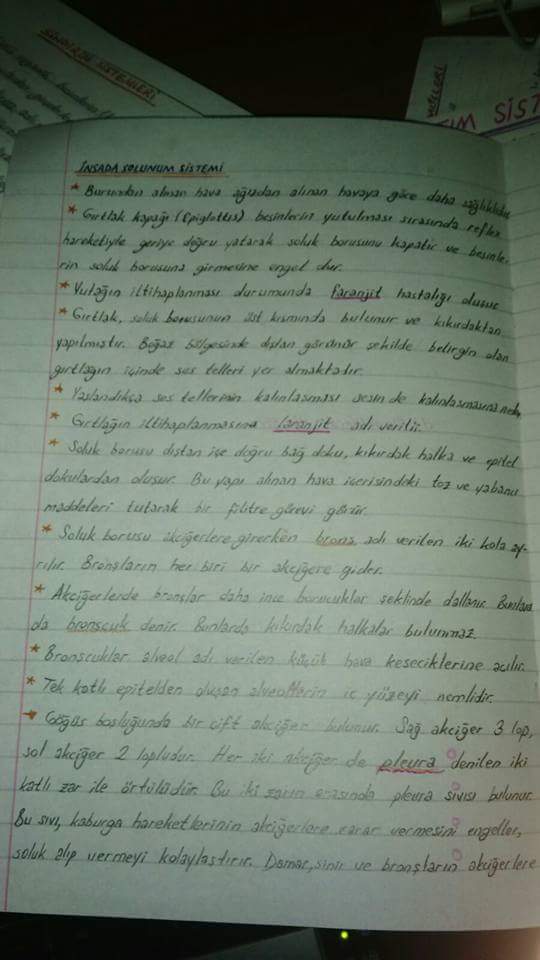 SİNDİRİM SİSTEMLERİ
SİST
İNSADA SOLUNUM SİSTEMİ
* Burundan alınan hava ağızdan alınan havaya göre daha sağlıklıdır.
* Gırtlak kapağı (Epiglottis) besinlerin yutulması sırasında reflex
hareketiyle geriye doğru yatarak soluk borusunu kapatır ve besinle-
rin soluk borusuna girmesine engel olur.
* Yutağın iltihaplanması durumunda faranjit hastalığı oluşur
* Gırtlak, soluk borusunun üst kısmında bulunur ve kıkırdaktan
yapılmıştır. Boğaz bölgesinde dıştan görünür şekilde belirgin olan
gırtlağın içinde ses telleri yer almaktadır.
* Yaşlandıkça ses tellerinin kalınlaşması sesin de kalınlaşmasına
* Gırtlağın iltihaplanmasına laranjit adı verilir.
* Soluk borusu dıştan içe doğru bağ doku, kıkırdak halka ve epitel
dokulardan oluşur. Bu yapı alınan hava içerisindeki toz ve yabancı
maddeleri tutarak bir filitre görevi görür.
* Soluk borusu akciğerlere girerken bronş adı verilen iki kola ay-
rılır. Bronşların her biri bir akciğere gider.
* Akciğerlerde bronşlar daha ince borucuklar şeklinde dallanır. Bunlara
da bronşcuk denir. Bunlarda kıkırdak halkalar bulunmaz.
* Bronşcuklar alveol adı verilen küçük hava keseciklerine açılır.
* Tek katlı epitelden oluşan alveollerin iç yüzeyi nemlidir.
→ Göğüs boşluğunda bir çift akciğer bulunur. Sağ akciğer 3 lop,
sol akciğer 2 lopludur. Her iki akciğer de pleura denilen iki
katlı zar ile örtülüdür. Bu iki zarın arasında pleura sıvısı bulunur.
Bu sıvı, kaburga hareketlerinin akciğerlere zarar vermesini engeller,
soluk alıp vermeyi kolaylaştırır. Damar, sinir ve bronşların akciğerlere